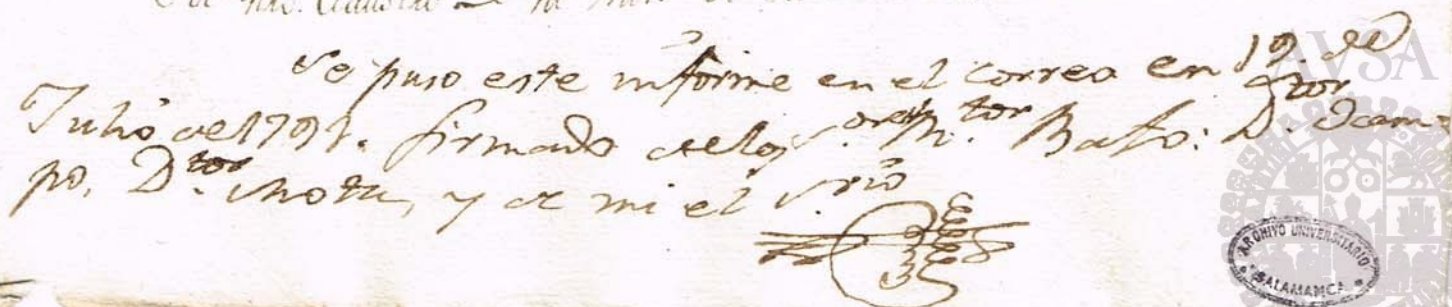 Se puso este informe en el correo en 19. de
Julio de 1791. firmado de los S.ores M.tor Bafo: D.tor Ocam-
po, D.tor Mota, y de mi el S.rio
AVSA
ARCHIVO UNIVERSITARIO
SALAMANCA